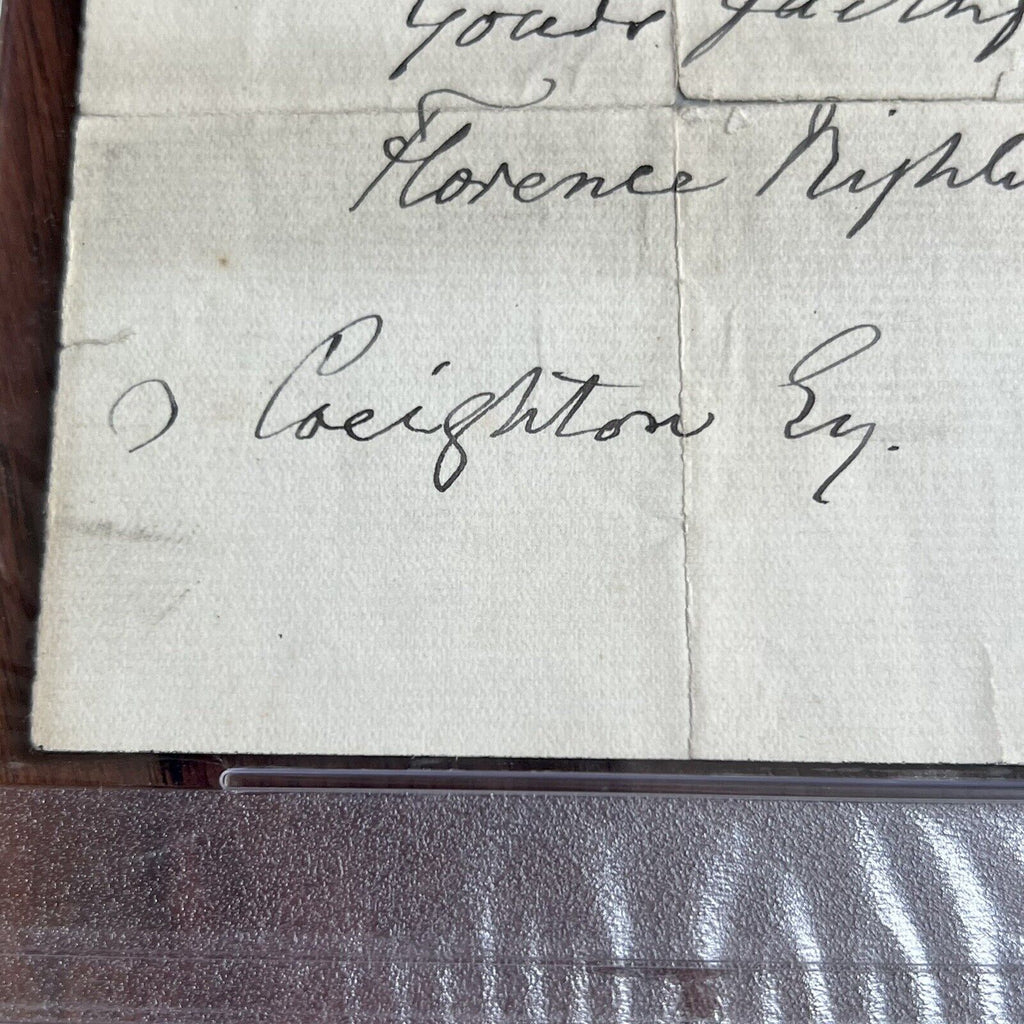 Yours faithf
Florence Nighti
Creighton Esq.